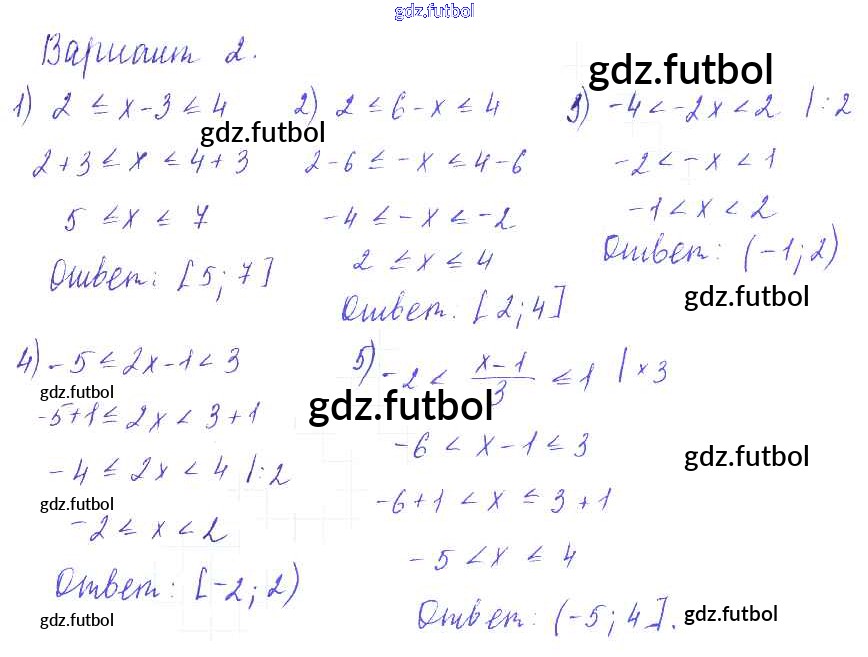 gdz.futbol
Вариант 2.
gdz.futbol
1) 2 ≤ x - 3 ≤ 4
gdz.futbol
2 + 3 ≤ x ≤ 4 + 3
5 ≤ x ≤ 7
Ответ: [5; 7]
2) 2 ≤ 6 - x ≤ 4
2 - 6 ≤ -x ≤ 4 - 6
-4 ≤ -x ≤ -2
2 ≤ x ≤ 4
Ответ: [2; 4]
3) -4 < -2x < 2 | : 2
-2 < -x < 1
-1 < x < 2
Ответ: (-1; 2)
gdz.futbol
4) -5 ≤ 2x - 1 < 3
gdz.futbol
-5 + 1 ≤ 2x < 3 + 1
-4 ≤ 2x < 4 | : 2
gdz.futbol
-2 ≤ x < 2
Ответ: [-2; 2)
gdz.futbol
5) -2 < (x - 1)/3 ≤ 1 | × 3
gdz.futbol
-6 < x - 1 ≤ 3
gdz.futbol
-6 + 1 < x ≤ 3 + 1
-5 < x ≤ 4
Ответ: (-5; 4].
gdz.futbol